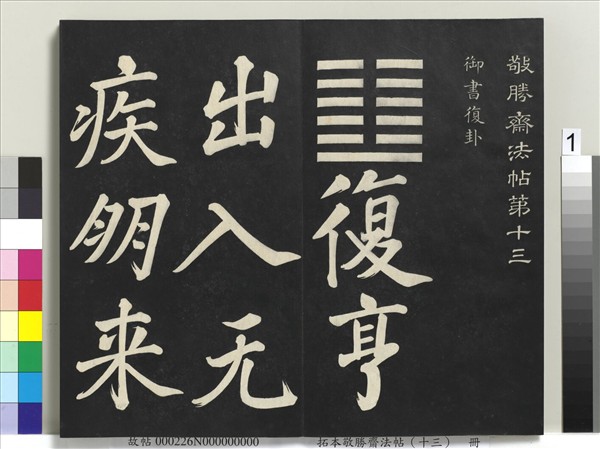 敬勝齋法帖第十三
御書復卦
䷗復亨
出入无
疾朋来
1
故帖 000226N000000000 拓本敬勝齋法帖（十三） 冊